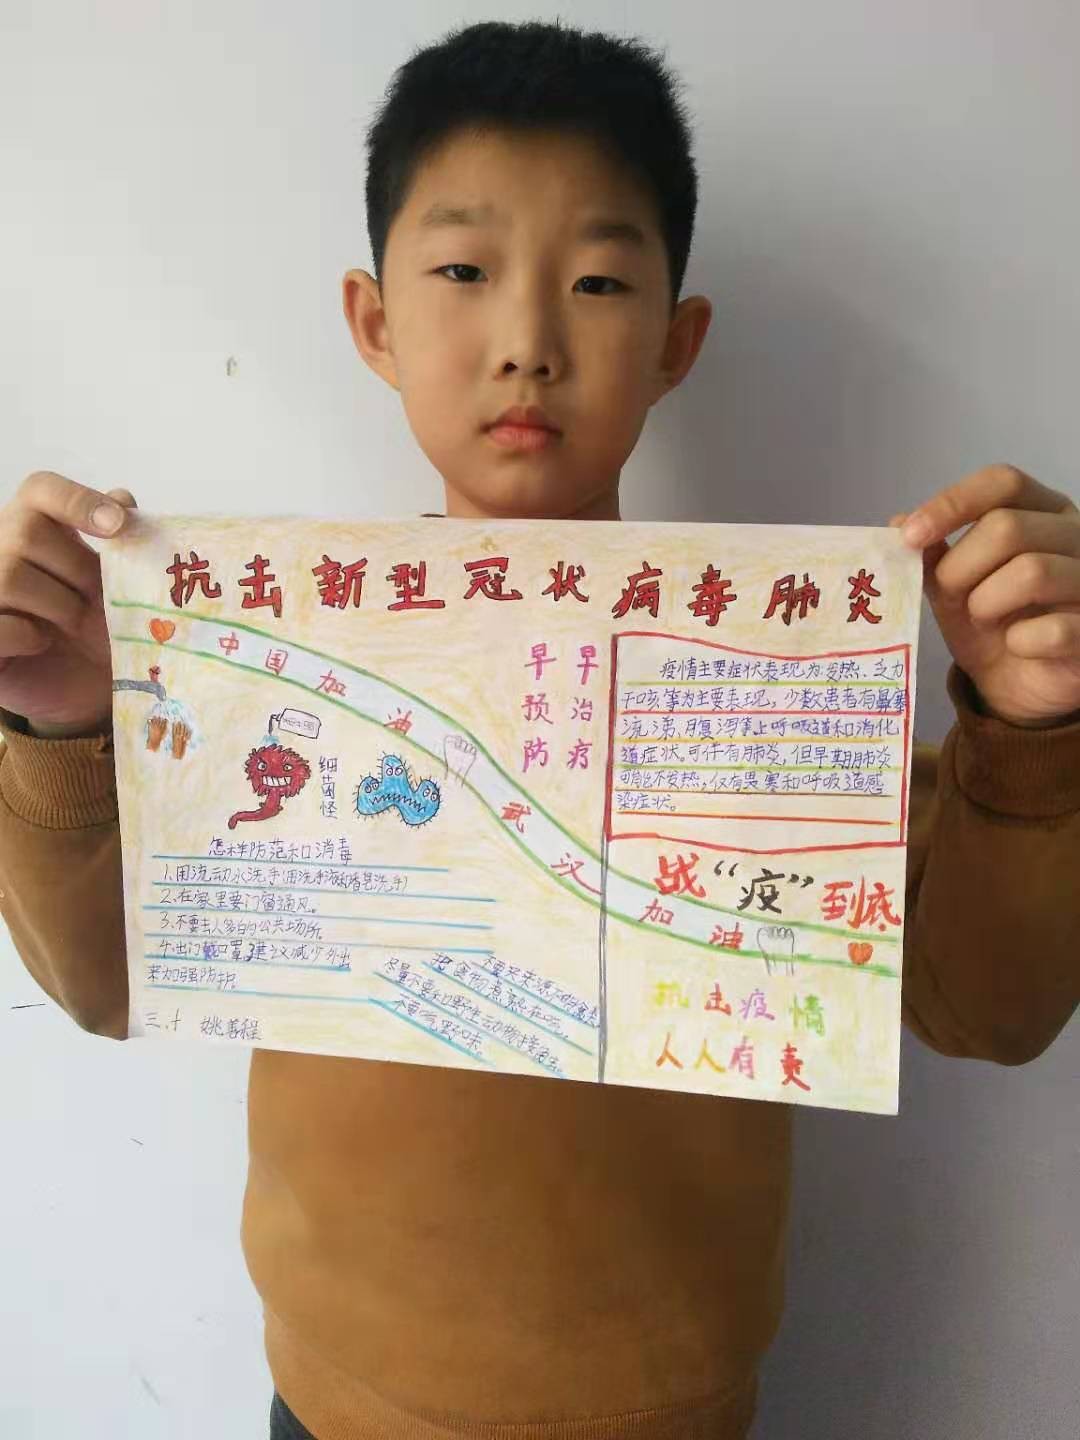 抗击新型冠状病毒肺炎
中国加油
武汉
加油
早预防
早治疗
疫情主要症状表现为发热、乏力
干咳等为主要表现，少数患者有鼻塞
流涕、腹泻等上呼吸道和消化
道症状。可伴有肺炎，但早期肺炎
可能不发热，仅有畏寒和呼吸道感
染症状。
细菌怪
怎样防范和消毒
1.用流动水洗手(用洗手液或香皂洗手)
2.在家里要门窗通风。
3.不要去人多的公共场所。
4.出门戴口罩,建议减少外出
来加强防护。
三.十 姚善程
不要买来源不明
把食物煮熟在吃。
尽量不要和野生动物接
不要吃野味。
战“疫”到底
抗击疫情
人人有责